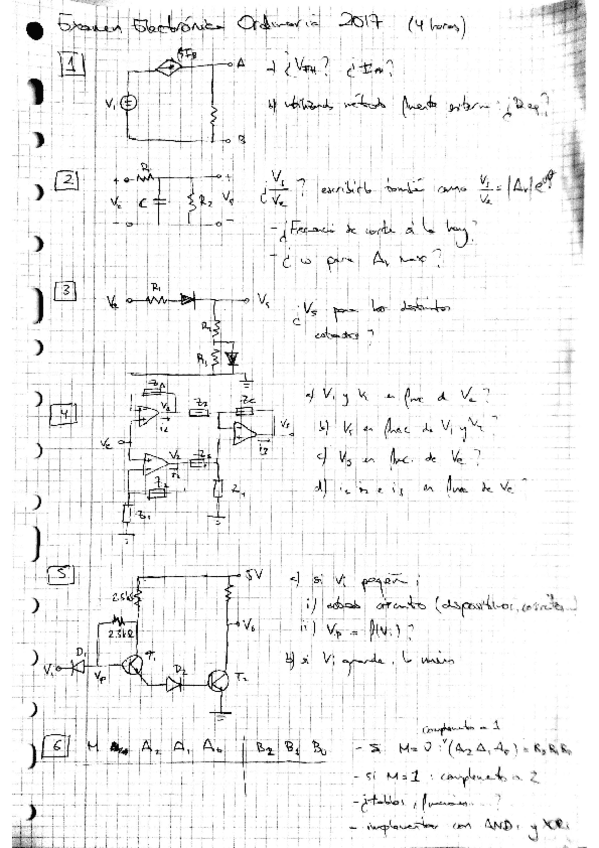 Examen Electrónica Ordinaria 2017 (4 horas)
1
βIB
A
V1
B
a) ¿VTH? ¿IN?
b) utilizando método fuente externa: ¿Req?
2
R1
Ve C R2 Vs
¿Vs/Ve? escribirlo también como Vs/Ve = |Av|e^jφ
- ¿Frecuencia de corte si la hay?
- ¿ω para Av max?
3
Ve R1 Vs
R2
R1
¿Vs para los distintos
estados?
4
a) V1 y V2 en func de Ve?
b) Vs en func de V1 y V2?
c) Vs en func. de Ve?
d) i1 i2 e i3 en func de Ve?
5
5V
2.5kΩ
2.5kΩ
V0
D1
Vi
Vp
T1
D2
T2
a) si Vi pequeña:
i) estado circuito (dispositivos, corrientes)
ii) Vp = f(Vi)?
b) si Vi grande, lo mismo
6
M A2 A1 A0 B2 B1 B0
complemento a 1
- Si M=0: (A2 A1 A0) = B2 B1 B0
- si M=1: complemento a 2
- ¿tablas, funciones...?
- implementar con AND, y XOR